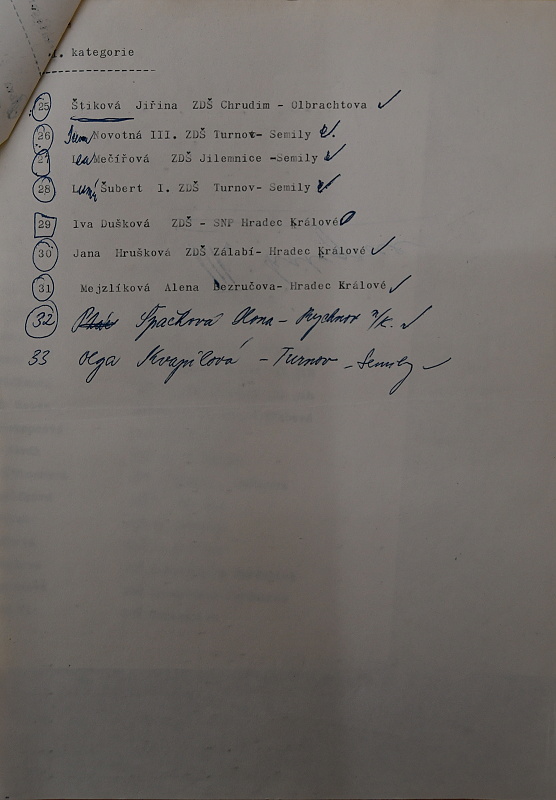 I. kategorie
25 Štiková Jiřina ZDŠ Chrudim - Olbrachtova
26 Novotná III. ZDŠ Turnov- Semily
27 Mečířová ZDŠ Jilemnice -Semily
28 Šubert I. ZDŠ Turnov- Semily
29 Iva Dušková ZDŠ - SNP Hradec Králové
30 Jana Hrušková ZDŠ Zálabí- Hradec Králové
31 Mejzlíková Alena Bezručova- Hradec Králové
32 Špačková Ilona - Rychnov n/K.
33 Olga Kvapilová - Turnov - Semily